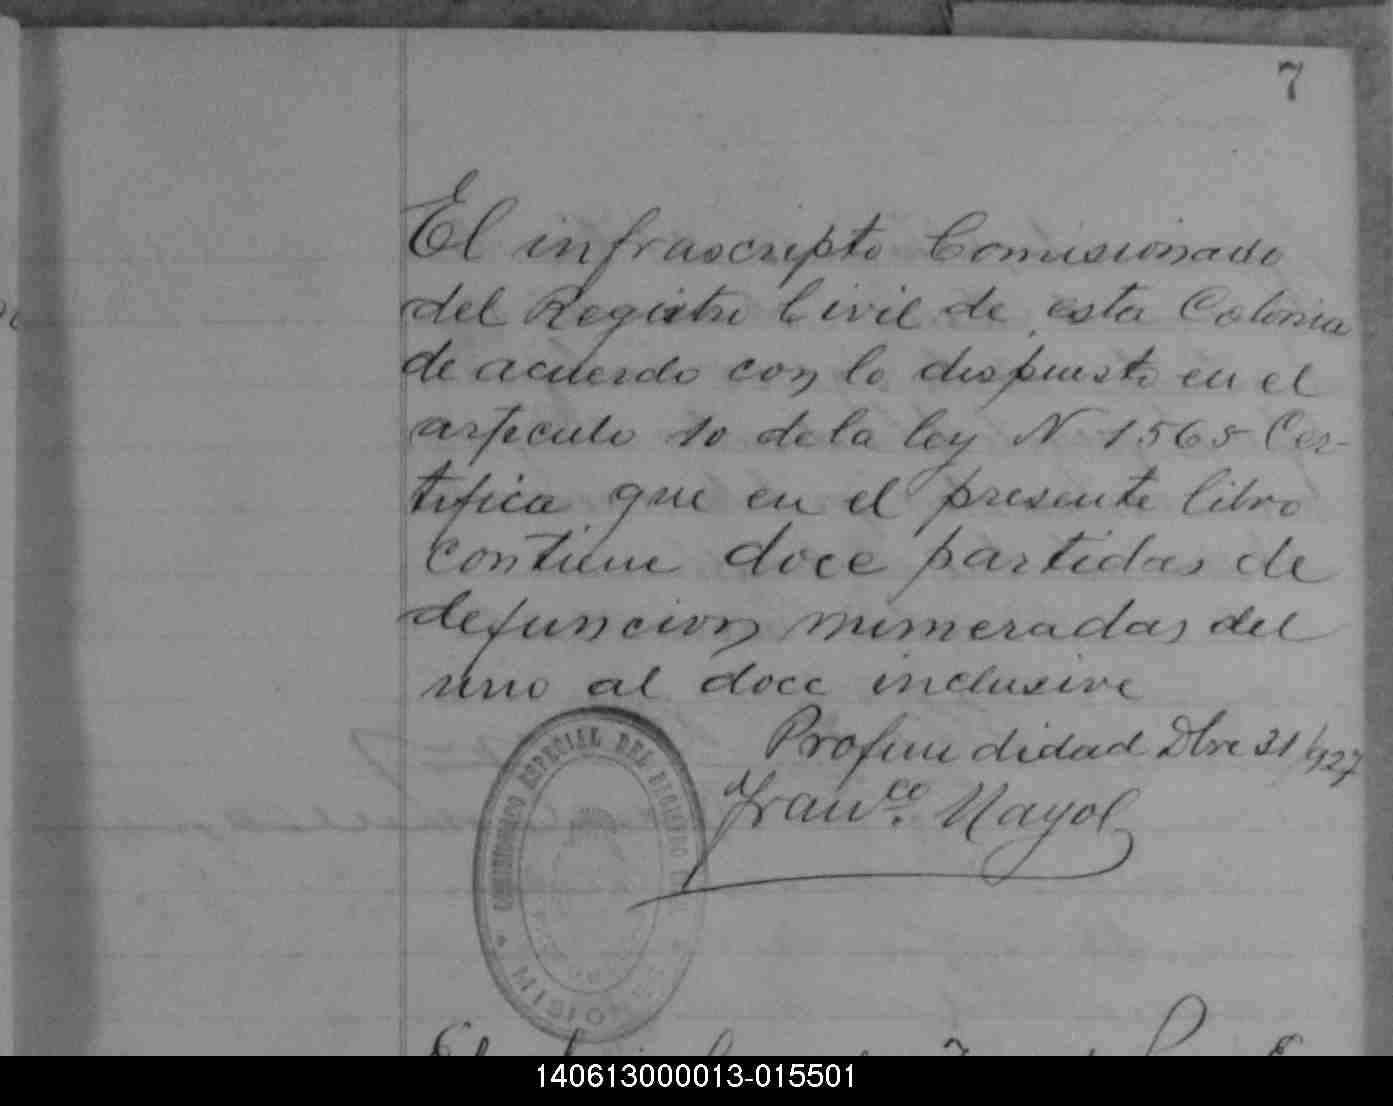 7
El infrascripto Comisionado
del Registro Civil de esta Colonia
de acuerdo con lo dispuesto en el
articulo 10 de la ley N 1565 Cer-
tifica que en el presente libro
contiene doce partidas de
defuncion numeradas del
uno al doce inclusive
Profundidad Dbre 31/927
Franco. Mayol
COMISIONADO ESPECIAL DEL REGISTRO CIVIL
MISIONES
140613000013-015501